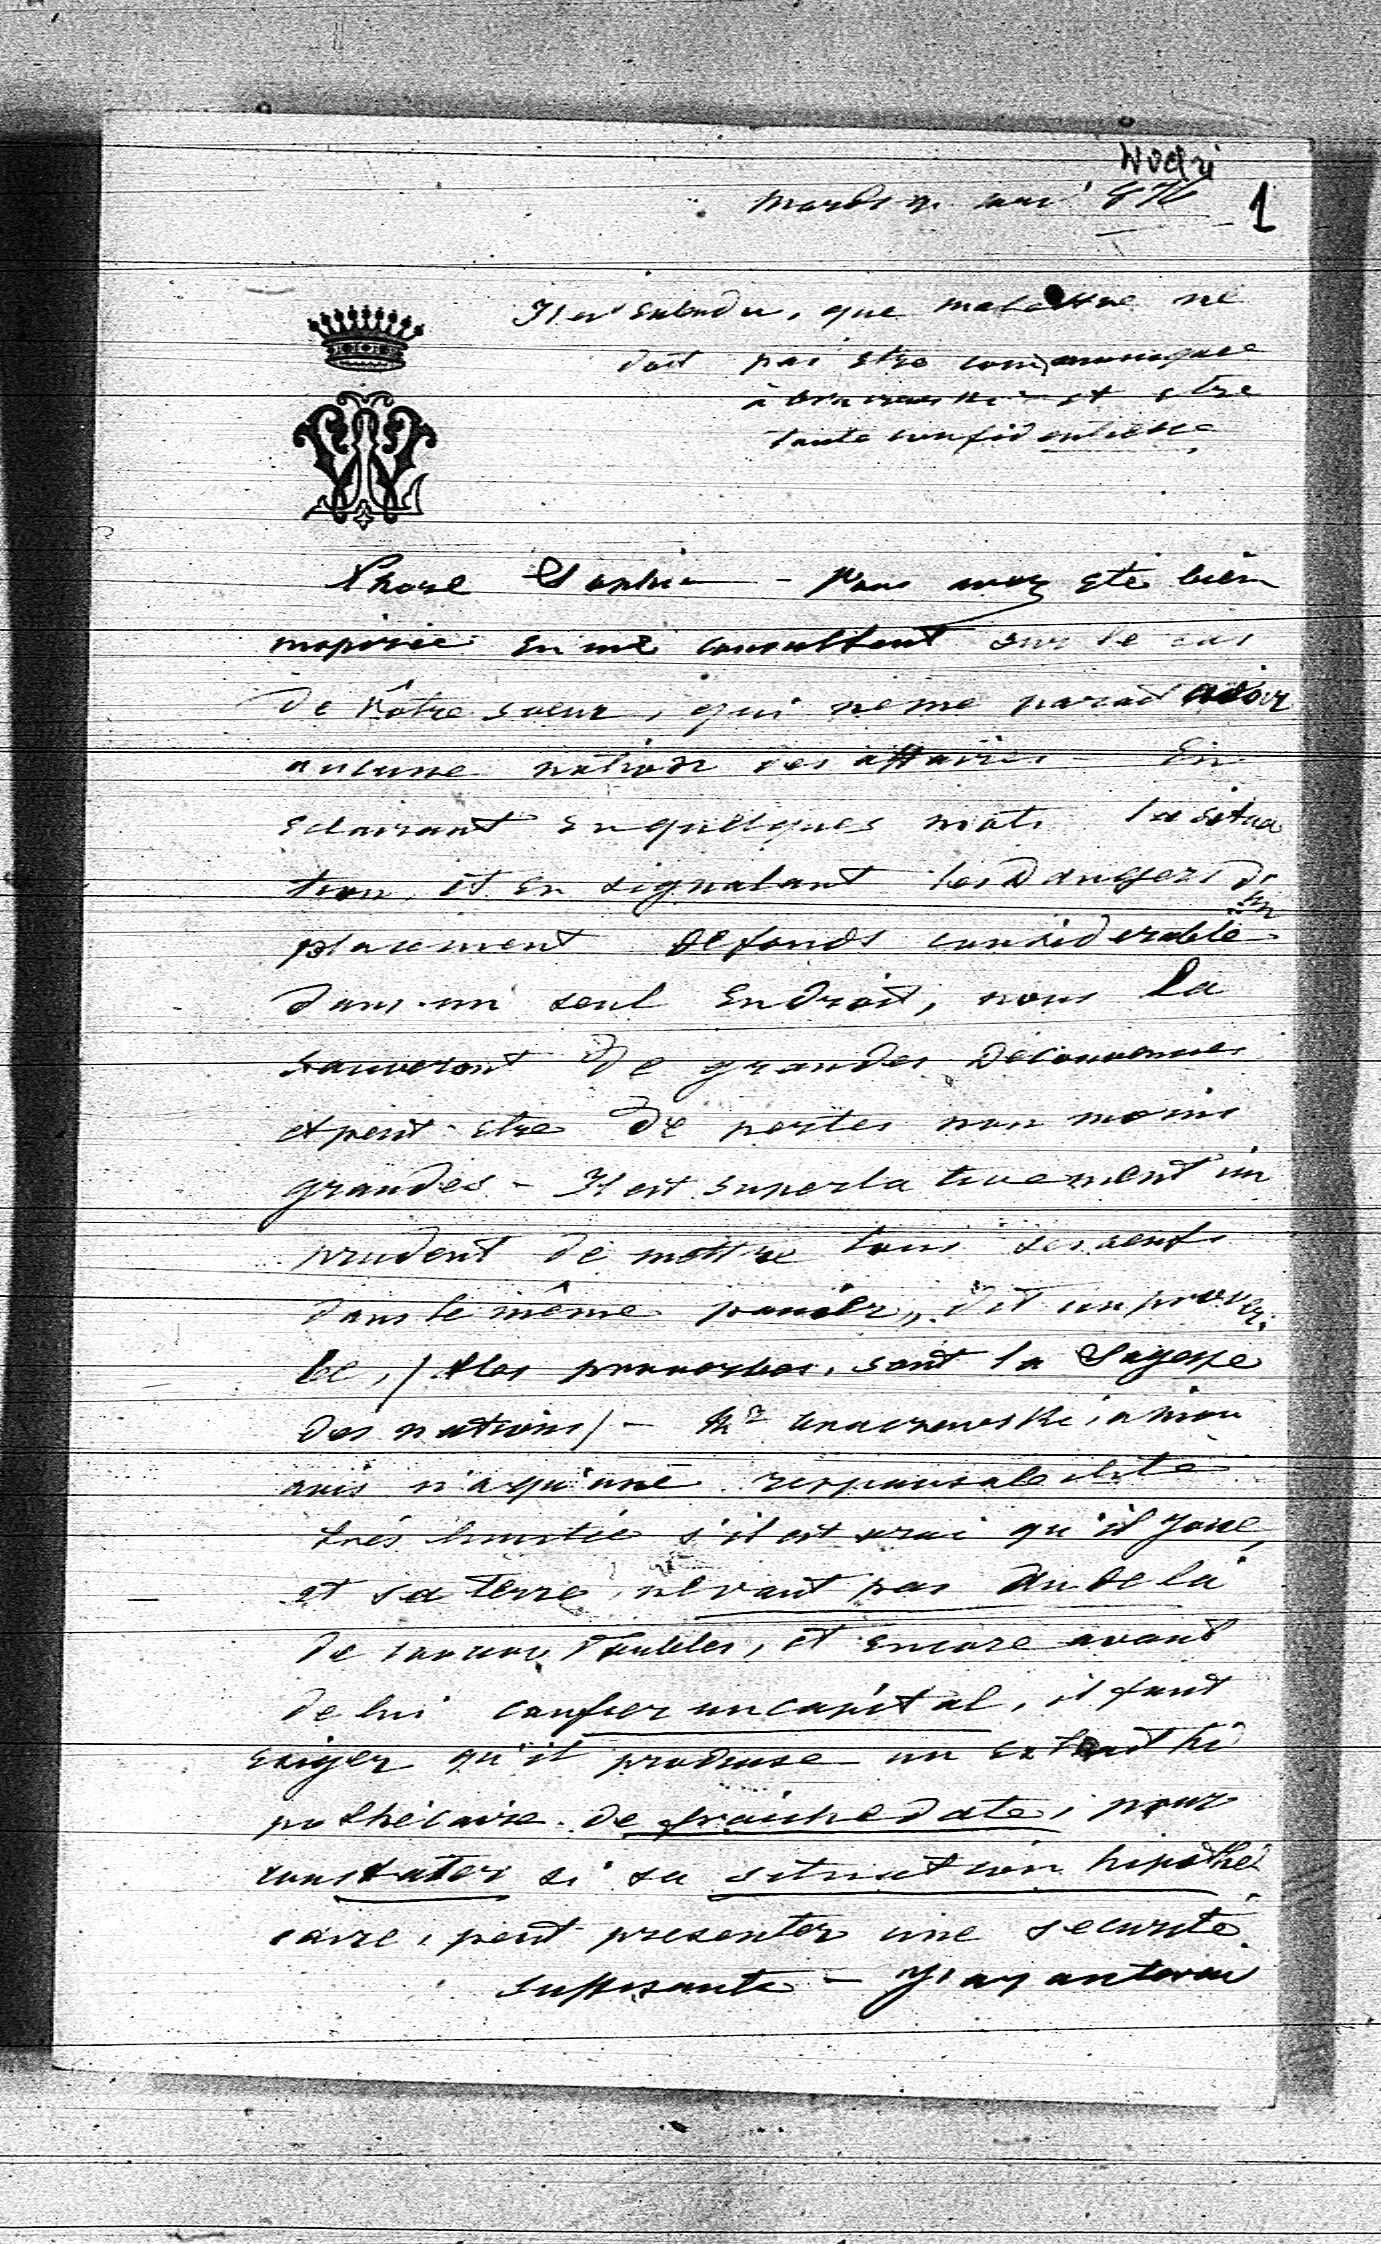 Mardi 9 mai 876
1
Il est entendu, que ma lettre ne
doit pas être communiquée
à et être
toute confidentielle
Chere Sophie - Vous avez eté bien
inspirée en me consultant sur le cas
de Vôtre soeur, qui ne me parait avoir
aucune notion des affaires - En
eclairant en quelques mots la situa
tion, et en signalant les dangers d'
un
placement de fonds considerable
dans un seul endroit, nous la
sauveront de grandes deconvenues
et peut-etre de pertes non moins
grandes - Il est superlativement im
prudent de mettre tous ses oeufs
dans le même panier, dit un prover
be, / les proverbes, sont la Sagesse
des nations / - Mr à mon
avis n'a qu'une responsabilité
trés limitée s'il est vrai qu'il joue,
et sa terre ne vaut pas au de la
de roubles, et encore avant
de lui confier un capital, il faut
exiger qu'il produise un extrait hi
pothécaire de fraiche date, pour
constater si sa situation hipothé
caire, peut presenter une securité
suffisante - Il ay